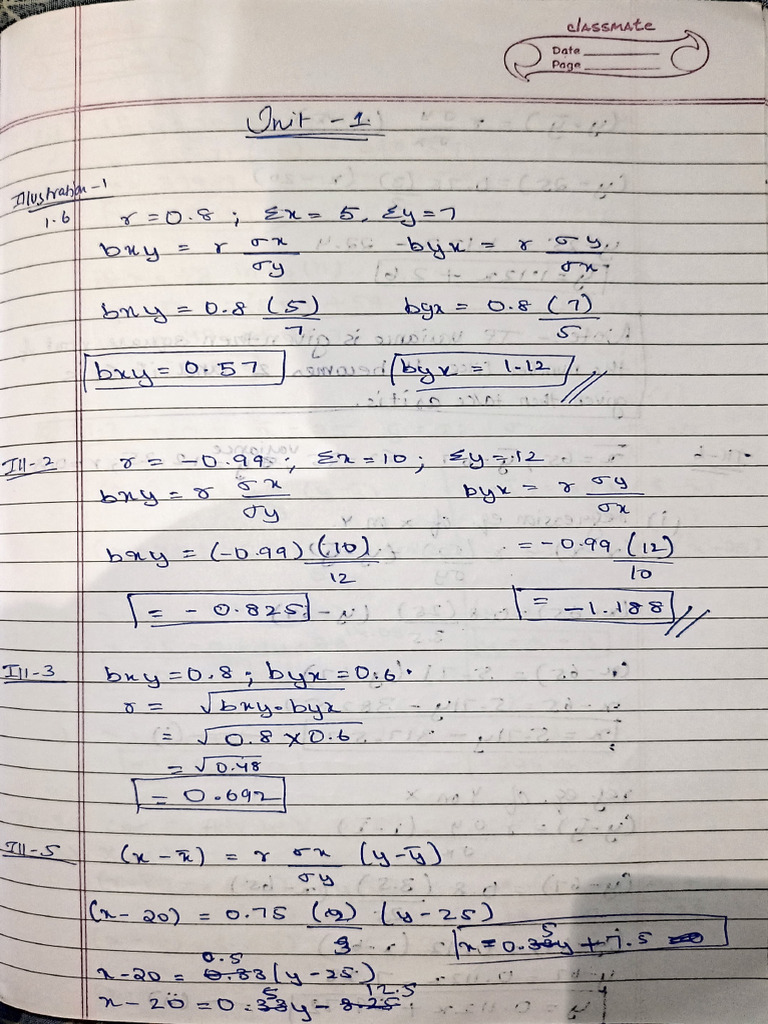 classmate
Date
Page
Unit - 1
Illustration - 1
1.6
r = 0.8 ; Σx = 5, Σy = 7
bxy = r σx/σy    byx = r σy/σx
bxy = 0.8 (5)/7    byx = 0.8 (7)/5
bxy = 0.57    byx = 1.12
Ill-2    r = -0.99 ; Σx = 10 ; Σy = 12
bxy = r σx/σy    byx = r σy/σx
bxy = (-0.99) (10)/12    = -0.99 (12)/10
= -0.825    = -1.188
Ill-3    bxy = 0.8 ; byx = 0.6
r = √bxy.byx
= √0.8 × 0.6
= √0.48
= 0.692
Ill-5    (x - x̄) = r σx/σy (y - ȳ)
(x - 20) = 0.75 (2)/3 (y - 25)
x = 0.5y + 7.5
x - 20 = 0.5 (y - 25)
x - 20 = 0.5y - 12.5